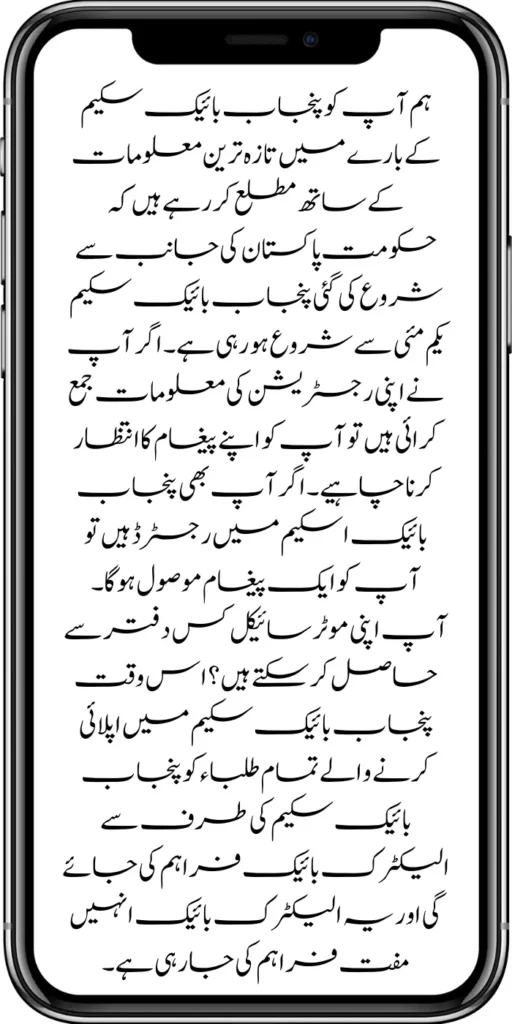 ہم آپ کو پنجاب بائیک سکیم
کے بارے میں تازہ ترین معلومات
کے ساتھ مطلع کر رہے ہیں کہ
حکومت پاکستان کی جانب سے
شروع کی گئی پنجاب بائیک سکیم
یکم مئی سے شروع ہو رہی ہے۔ اگر آپ
نے اپنی رجسٹریشن کی معلومات جمع
کرائی ہیں تو آپ کو اپنے پیغام کا انتظار
کرنا چاہیے۔ اگر آپ بھی پنجاب
بائیک اسکیم میں رجسٹرڈ ہیں تو
آپ کو ایک پیغام موصول ہوگا۔
آپ اپنی موٹر سائیکل کس دفتر سے
حاصل کر سکتے ہیں؟ اس وقت
پنجاب بائیک سکیم میں اپلائی
کرنے والے تمام طلباء کو پنجاب
بائیک سکیم کی طرف سے
الیکٹرک بائیک فراہم کی جائے
گی اور یہ الیکٹرک بائیک انہیں
مفت فراہم کی جا رہی ہے۔